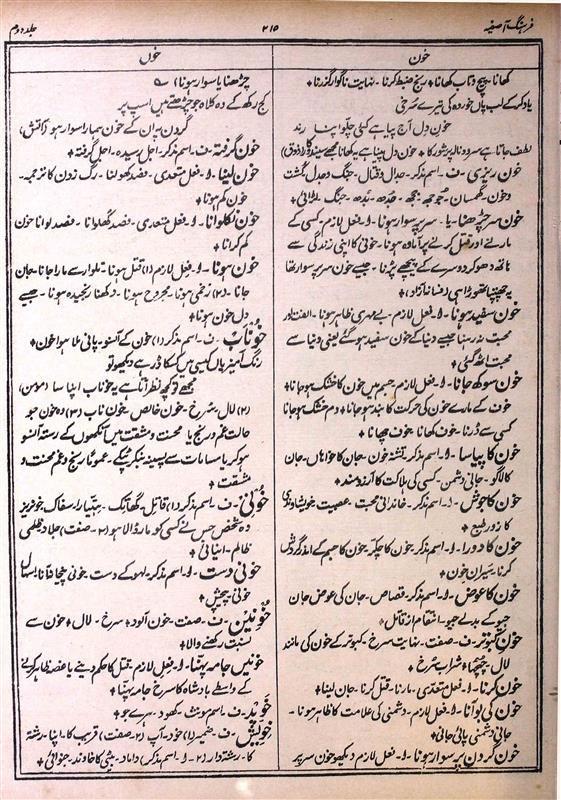 فرہنگ آصفیہ
۲۱۵
جلد دوم
خون
کھانا۔ پیچ و تاب کھانا + رنج ضبط کرنا۔ نہایت ناگوار گزرنا +
یاد کر کے لب پاں خوردہ کی تیرے سرخی
خون دل آج پیا ہے کئی چلّو اپنا رند
لطف جاتا ہے سرود نالۂ پر شور کا + خون دل پینا ہے یہ کھانا مجھے (ذوق)
خون ریزی۔ ف۔ اسم مذکر۔ جدال و قتال۔ جنگ و جدل، کشت
و خون۔ گھمسان۔ جنگ۔ لڑائی +
خون سر چڑھنا۔ یا۔ سر پر سوار ہونا۔ ا۔ فعل لازم۔ کسی کے
مارنے اور قتل کرنے پر آمادہ ہونا۔ خونی کا اپنی زندگی سے
ہاتھ دھو کر دوسرے کے پیچھے پڑنا۔ جیسے خون سر پر سوار تھا
یہ چھپتا تھوڑا ہی (فسانۂ آزاد) +
خون سفید ہونا۔ ا۔ فعل لازم۔ بے مہری ظاہر ہونا۔ الفت اور
محبت نہ رہنا جیسے دنیا کے خون سفید ہو گئے یعنی دنیا سے
محبت اٹھ گئی +
خون سوکھ جانا۔ ا۔ فعل لازم۔ جسم میں خون کا خشک ہو جانا +
خوف کے مارے خون کی حرکت کا بند ہو جانا + دم خشک ہو جانا
کسی سے ڈرنا۔ خوف کھانا۔ خوف چھانا +
خون کا پیاسا۔ ا۔ اسم مذکر۔ تشنۂ خون۔ جان کا خواہاں۔ جان
کا لاگو۔ جانی دشمن۔ کسی کی ہلاکت کا آرزو مند +
خون کا جوش۔ ا۔ اسم مذکر۔ خاندانی محبت۔ عصبیت۔ خویشاوندی
کا زور طبع +
خون کا دورا۔ ا۔ اسم مذکر۔ خون کا چکر۔ خون کا جسم کے اندر گردش
کرنا۔ سیران خون +
خون کا عوض۔ ا۔ اسم مذکر۔ قصاص۔ جان کی عوض جان
جیو کے بدلے جیو۔ انتقام از قاتل +
خون کبوتر۔ ف۔ صفت۔ نہایت سرخ۔ کبوتر کے خون کی مانند
لال۔ چہچہا + شراب سرخ +
خون کرنا۔ ا۔ فعل متعدی۔ مارنا۔ قتل کرنا۔ جان لینا +
خون کی بو آنا۔ ا۔ فعل لازم۔ دشمنی کی علامت کا ظاہر ہونا۔
جانی دشمنی پائی جانی +
خون گردن پر سوار ہونا۔ ا۔ فعل لازم۔ دیکھو خون سر پر
خوں
چڑھنا یا سوار ہونا) ؎
کج رکھ کے وہ کلاہ جو چڑھتے ہیں اسپ پر
گردن پہ ان کے خون ہمارا سوار ہو (آتش)
خون گرفتہ۔ ف۔ اسم مذکر۔ اجل رسیدہ۔ اجل گرفتہ +
خون لینا۔ ا۔ فعل متعدی۔ فصد کھولنا۔ رگ زدن کا ترجمہ۔
خون کم ہونا +
خون نکلوانا۔ ا۔ فعل متعدی۔ فصد کھلوانا۔ فصد لوانا خون
کم کرانا +
خون ہونا۔ ا۔ فعل لازم (۱) قتل ہونا۔ تلوار سے مارا جانا۔ جان
جانا۔ (۲) زخمی ہونا۔ مجروح ہونا۔ دکھنا۔ رنجیدہ ہونا۔ جیسے
دل خون ہونا +
خوناب۔ ف۔ اسم مذکر (۱) خون کے آنسو۔ پانی ملا ہوا خون +
رنگ آمیز یاں کیسی ہیں کہ ڈر ہے دیکھو تو
مجھے تو کچھ نظر آتا ہے یہ خوناب اپنا سا (مومن)
(۲) لال۔ سرخ۔ خون خالص۔ خون ناب (۳) وہ خون جو
حالت غم و رنج یا محنت و مشقت میں آنکھوں کے رستہ آنسو
ہو کر یا مسامات سے پسینہ بنکر ٹپکے۔ عموماً رنج و غم محنت و
مشقت +
خونی۔ ف۔ اسم مذکر (۱) قاتل۔ گھاتک۔ ہتیارا۔ سفاک۔ خونریز
وہ شخص جس نے کسی کو مار ڈالا ہو (۲۔ صفت) جلاد۔ ظلمی
ظالم۔ انیائی +
خونی دست۔ ا۔ اسم مذکر۔ لہو کے دست۔ خونی پیچانا۔ اسہال
خونی۔ پیچش +
خونین۔ ف۔ صفت۔ خون آلود + سرخ۔ لال + خون سے
نسبت رکھنے والا +
خونیں جامہ پہننا۔ ا۔ فعل لازم۔ قتل کا حکم دینے یا غصہ ظاہر کرنے
کے واسطے بادشاہ کا سرخ جامہ پہننا +
خوید۔ ف۔ اسم مونث۔ کھود۔ ہرے جو +
خویش۔ ف۔ ضمیر (۱) خود۔ آپ (۲۔ صفت) قریب کا۔ اپنا۔ رشتہ
کا۔ رشتہ دار (۲۔ ا۔ اسم مذکر) داماد۔ بیٹی کا خاوند۔ جنوائی +